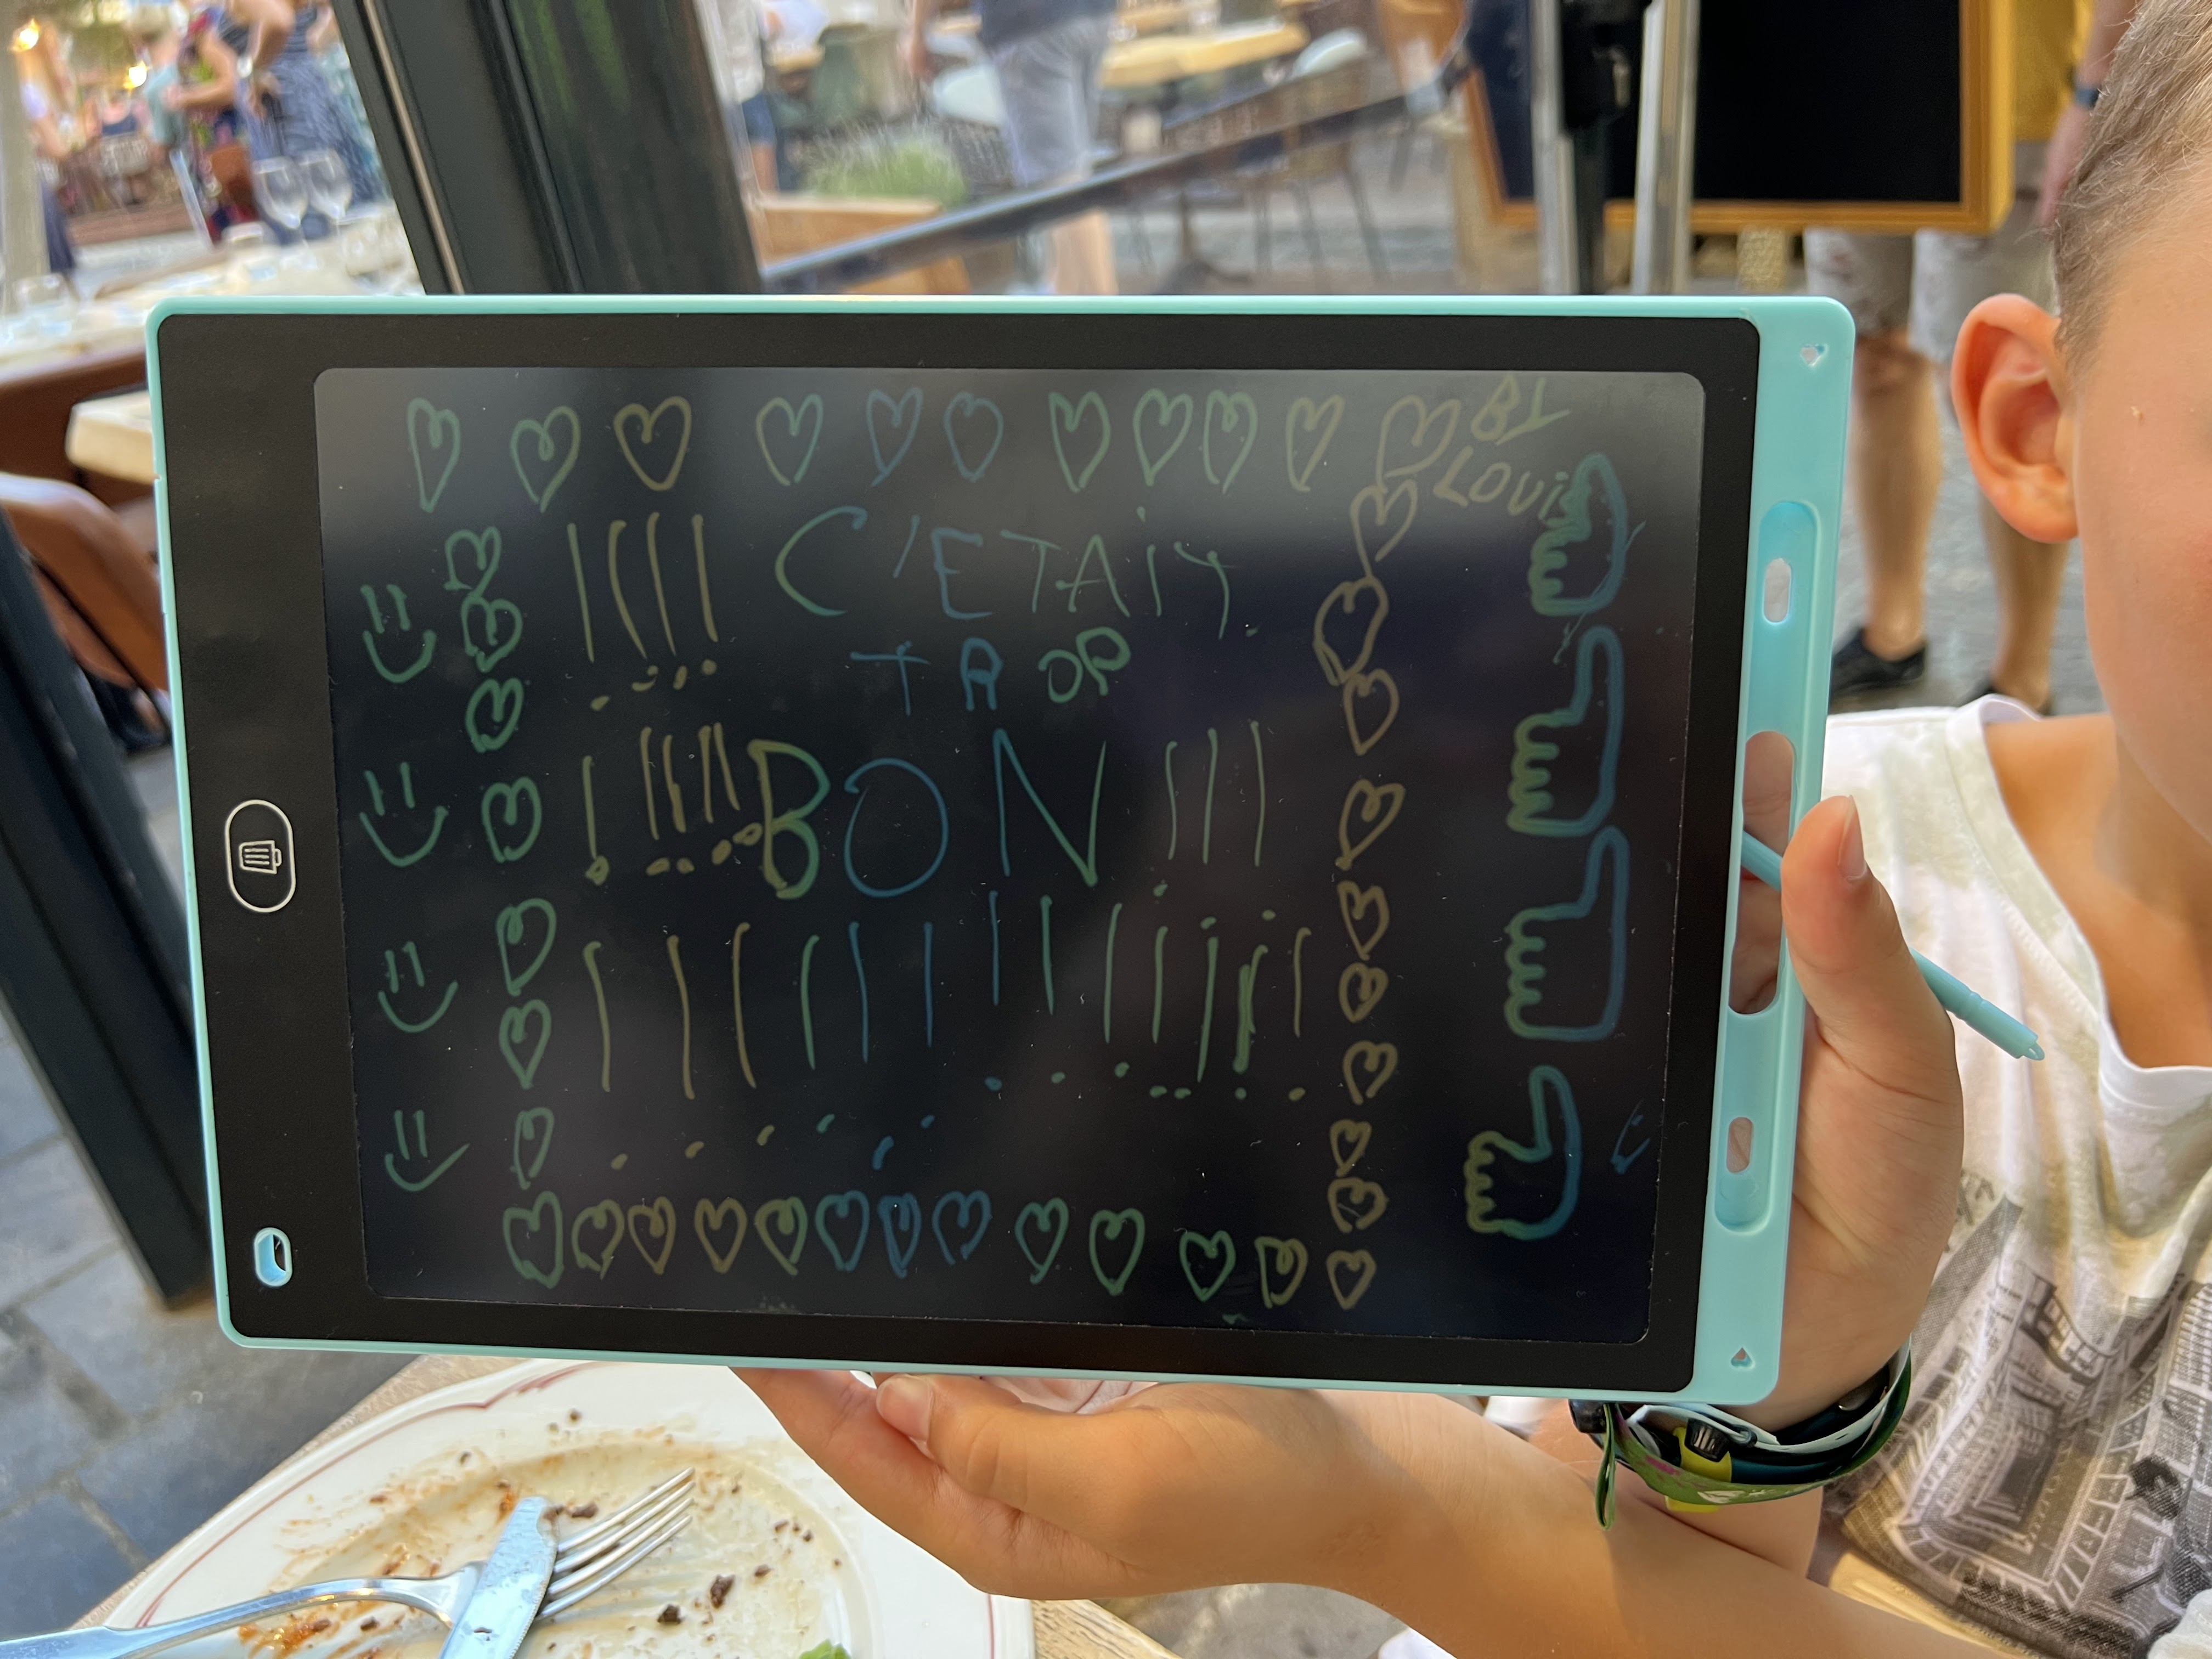 BY
LOUIS
!!!! C'ETAIT
TROP
!!!!! BON !!!
!!!!!!!!!!!!!